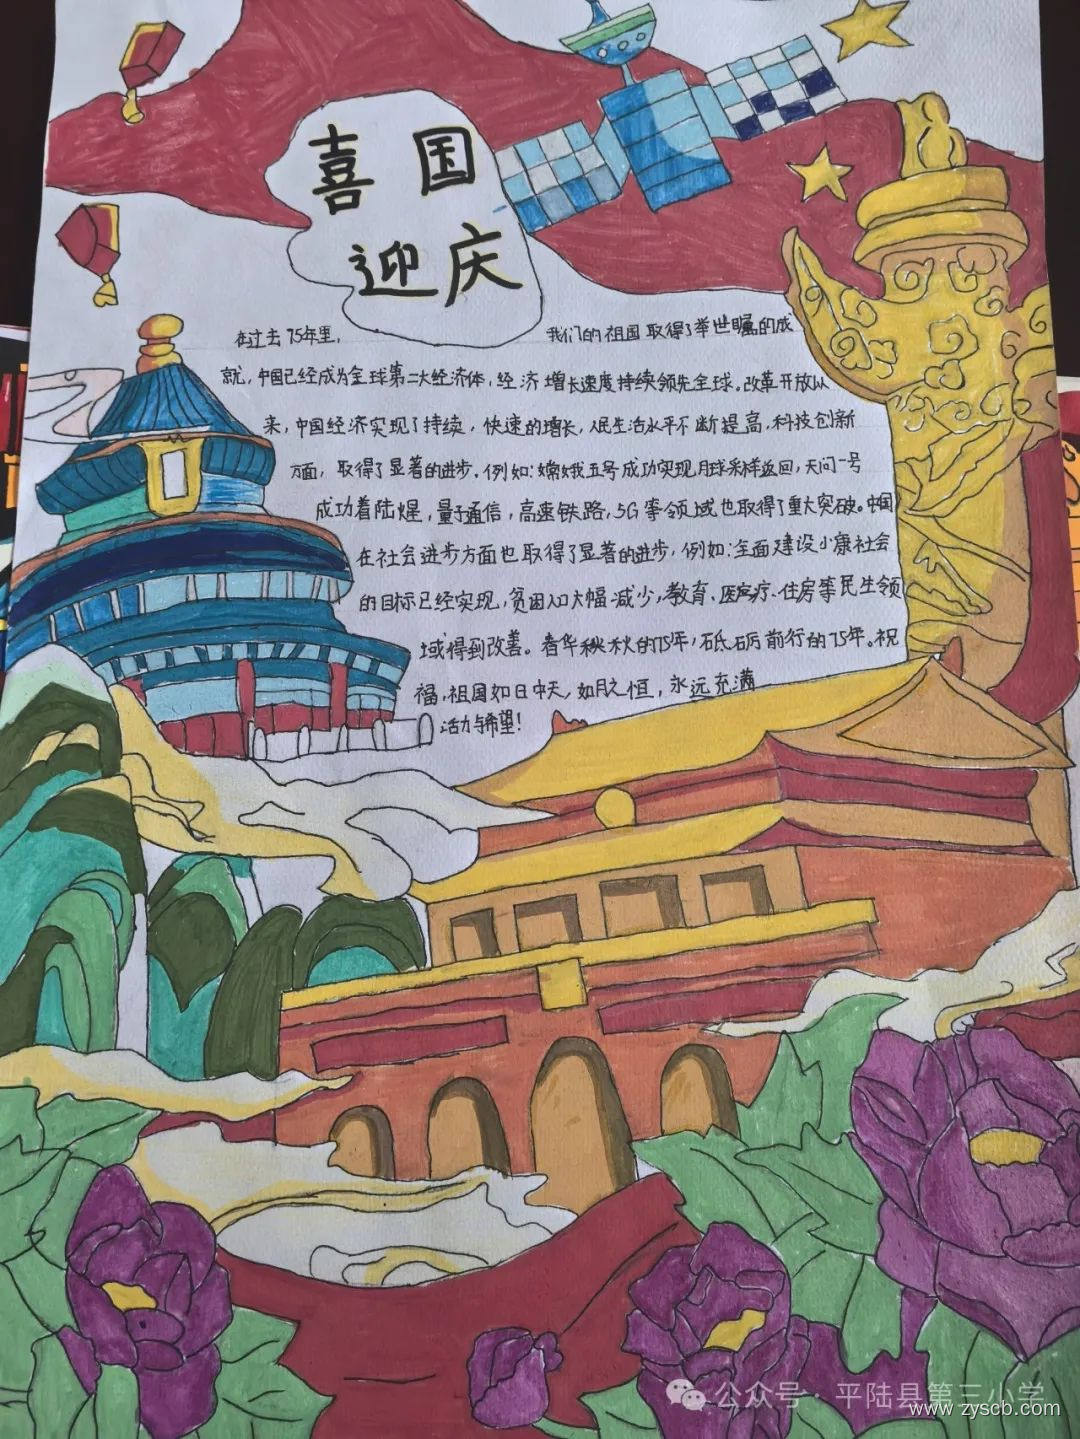 喜 国
迎 庆
在过去75年里， 我们的祖国取得了举世瞩的成
就，中国已经成为全球第二大经济体，经济增长速度持续领先全球。改革开放以
来，中国经济实现了持续，快速的增长，人民生活水平不断提高，科技创新
方面，取得了显著的进步。例如：嫦娥五号成功实现月球采样返回，天问一号
成功着陆火星，量子通信，高速铁路，5G等领域也取得了重大突破。中国
在社会进步方面也取得了显著的进步，例如：全面建设小康社会
的目标已经实现，贫困人口大幅减少，教育、医疗、住房等民生领
域得到改善。春华秋秋的75年，砥砺前行的75年。祝
福，祖国如日中天，如月之恒，永远充满
活力与希望！
公众号·平陆县第三小学
www.zyscb.com